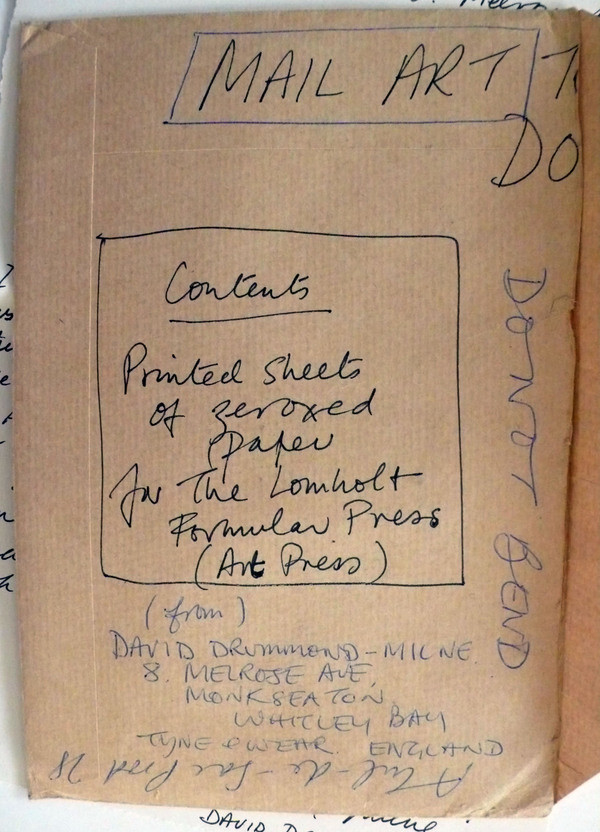 MAIL ART
DO
Contents
Printed Sheets
of zeroxed
paper
for The Lomholt
Formular Press
(Art Press)
(from)
DAVID DRUMMOND-MILNE.
8. MELROSE AVE,
MONKSEATON,
WHITLEY BAY
TYNE & WEAR. ENGLAND
A Cul-de-Sac Prod 78
DO NOT BEND